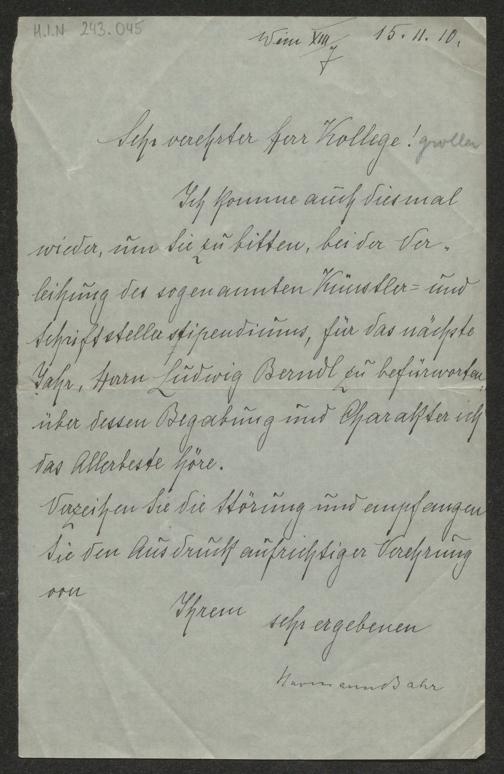 H.I.N 243.045
Wien XIII/7 15.11.10.
Sehr verehrter Herr Kollege!
Ich komme auch diesmal
wieder, um Sie zu bitten, bei der Ver-
leihung des sogenannten Künstler= und
Schriftstellerstipendiums, für das nächste
Jahr, Herrn Ludwig Berndl zu befürworten,
über dessen Begabung und Charakter ich
das Allerbeste höre.
Verzeihen Sie die Störung und empfangen
Sie den Ausdruck aufrichtiger Verehrung
von
Ihrem sehr ergebenen
Hermann Bahr